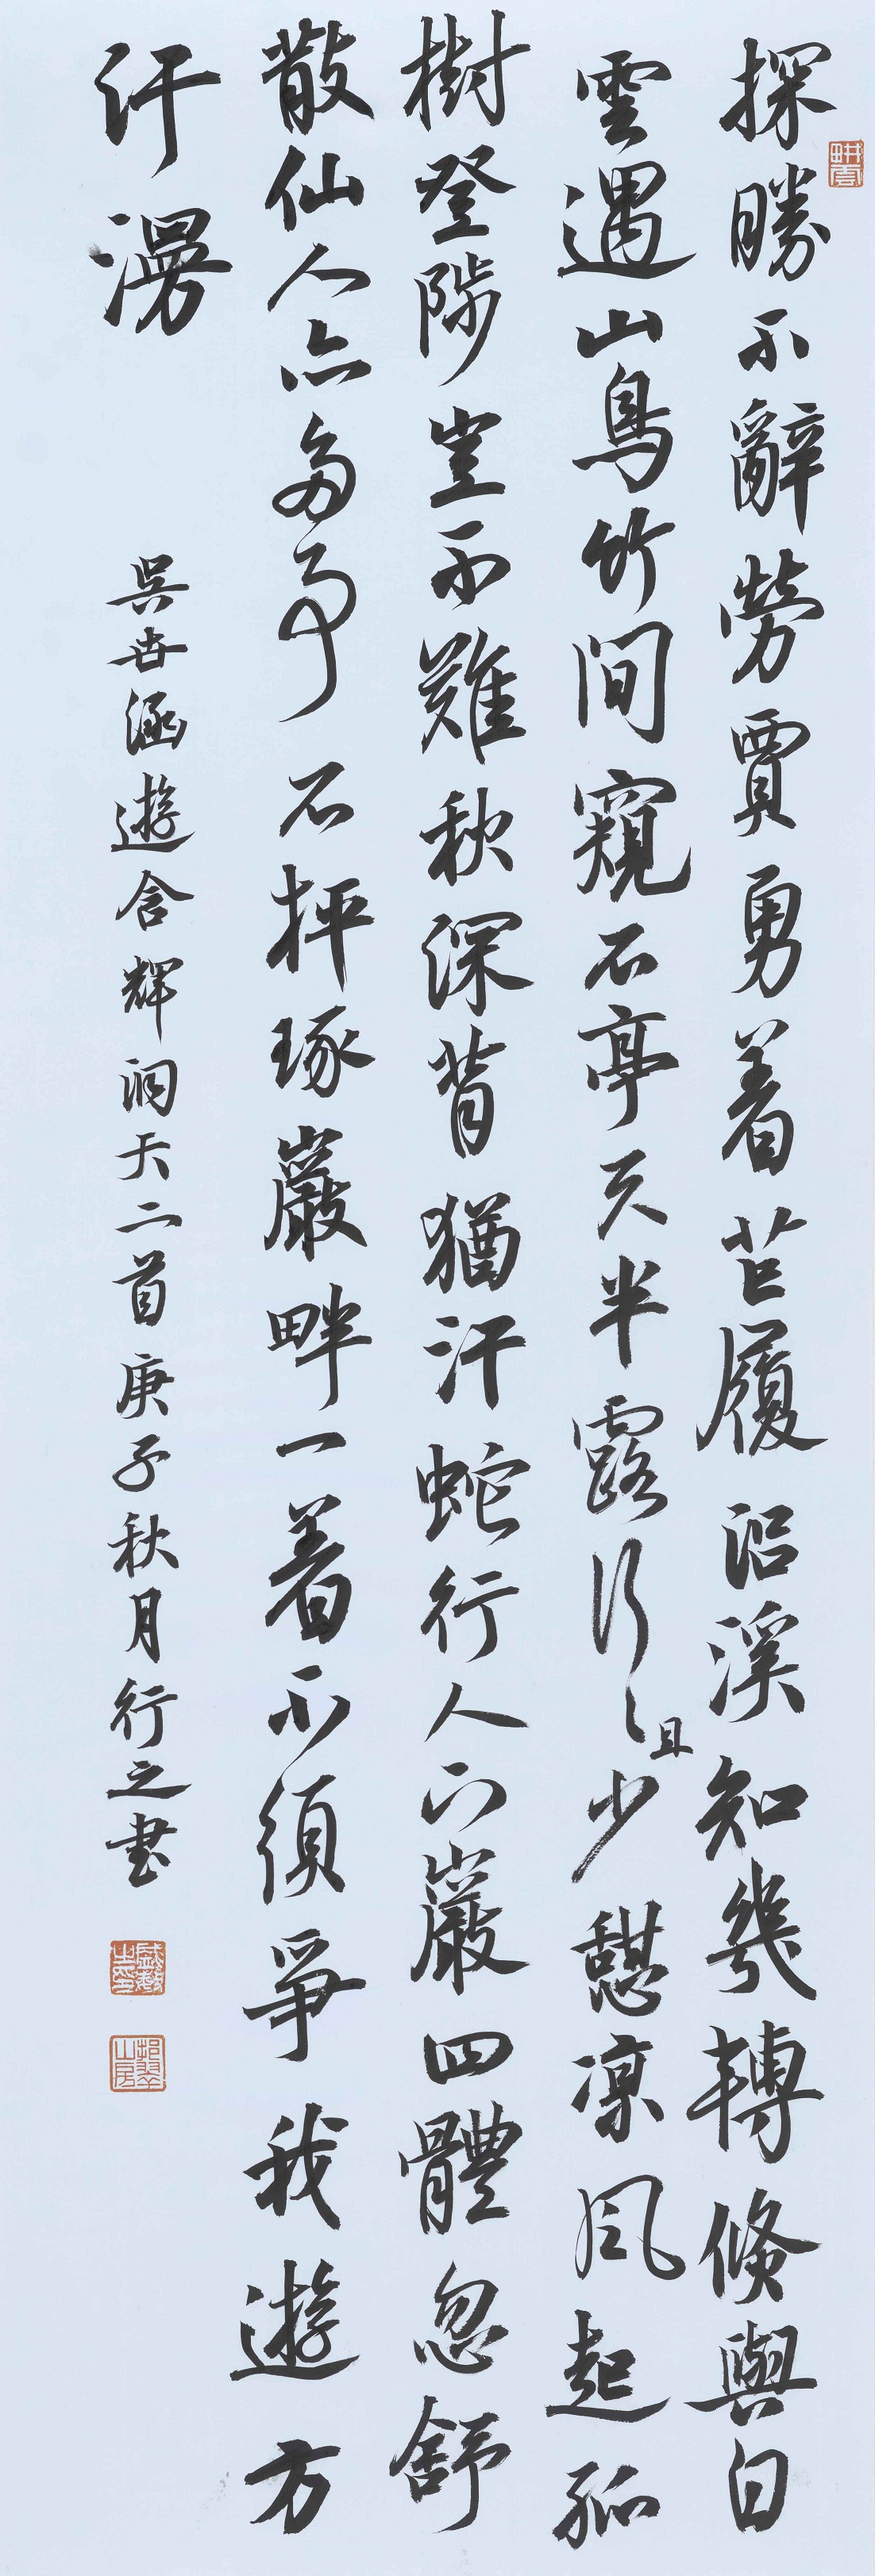 探勝不辭勞賈勇着芒履沿溪知幾轉倏與白
雲遇山鳥竹間窺石亭天半露行〻且少憩凉風起孤
樹登陟豈不難秋深背猶汗蛇行人下巖四體忽舒
散仙人亦多事石枰琢巖畔一着不須爭我遊方
汗漫
吳世涵遊含輝洞天二首庚子秋月行之书
耕雲
挹翠山房